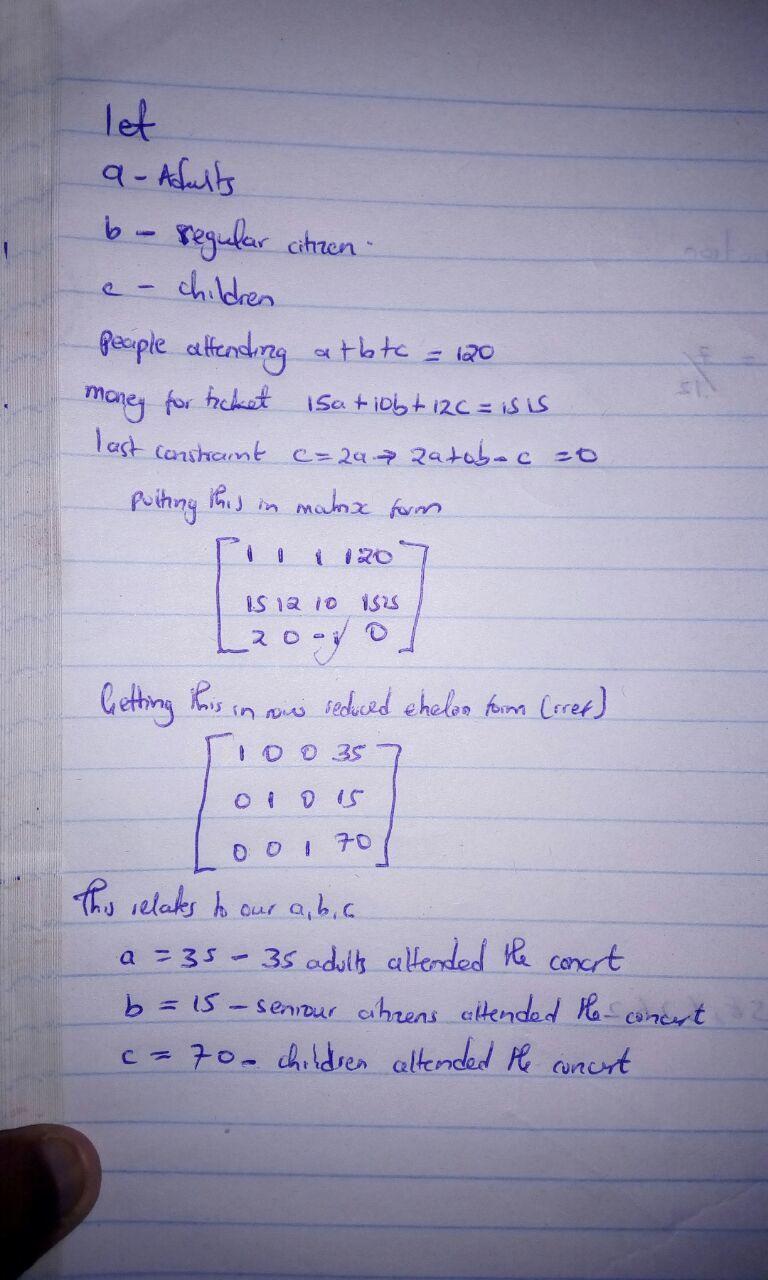 let
a - Adults
b - regular citizen.
c - children
People attending a+b+c = 120
money for ticket 15a+10b+12c = 1515
last constraint c=2a → 2a+0b-c =0
putting this in matrix form
1 1 1 120
15 12 10 1525
2 0 -1 0
Getting this in row reduced echelon form (rref)
1 0 0 35
0 1 0 15
0 0 1 70
This relates to our a,b,c
a = 35 - 35 adults attended the concrt
b = 15 - seniour citizens attended the concert
c = 70 - children attended the concert